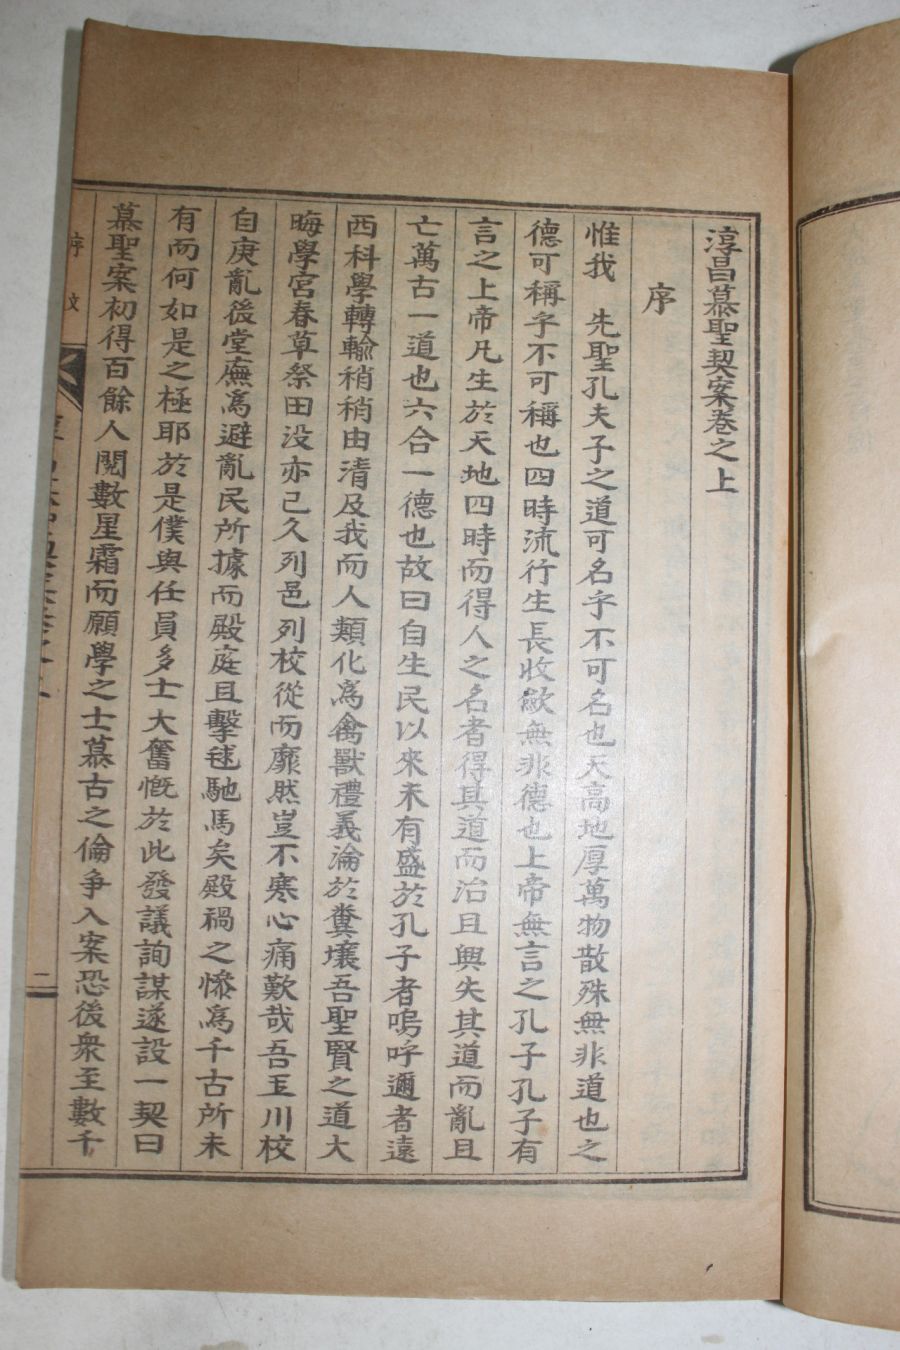 淳昌慕聖契案卷之上
序
惟我　先聖孔夫子之道可名乎不可名也天高地厚萬物散殊無非道也之
德可稱乎不可稱也四時流行生長收斂無非德也上帝無言之孔子孔子有
言之上帝凡生於天地四時而得人之名者得其道而治且興失其道而亂且
亡萬古一道也六合一德也故曰自生民以來未有盛於孔子者嗚呼邇者遠
西科學轉輸稍稍由清及我而人類化爲禽獸禮義淪於糞壤吾聖賢之道大
晦學宮春草祭田没亦已久列邑列校從而靡然豈不寒心痛歎哉吾玉川校
自庚亂後堂廡爲避亂民所據而殿庭且擊毬馳馬矣殿禍之慘爲千古所未
有而何如是之極耶於是僕與任員多士大奮慨於此發議詢謀遂設一契曰
慕聖案初得百餘人閱數星霜而願學之士慕古之倫爭入案恐後衆至數千
序文
二